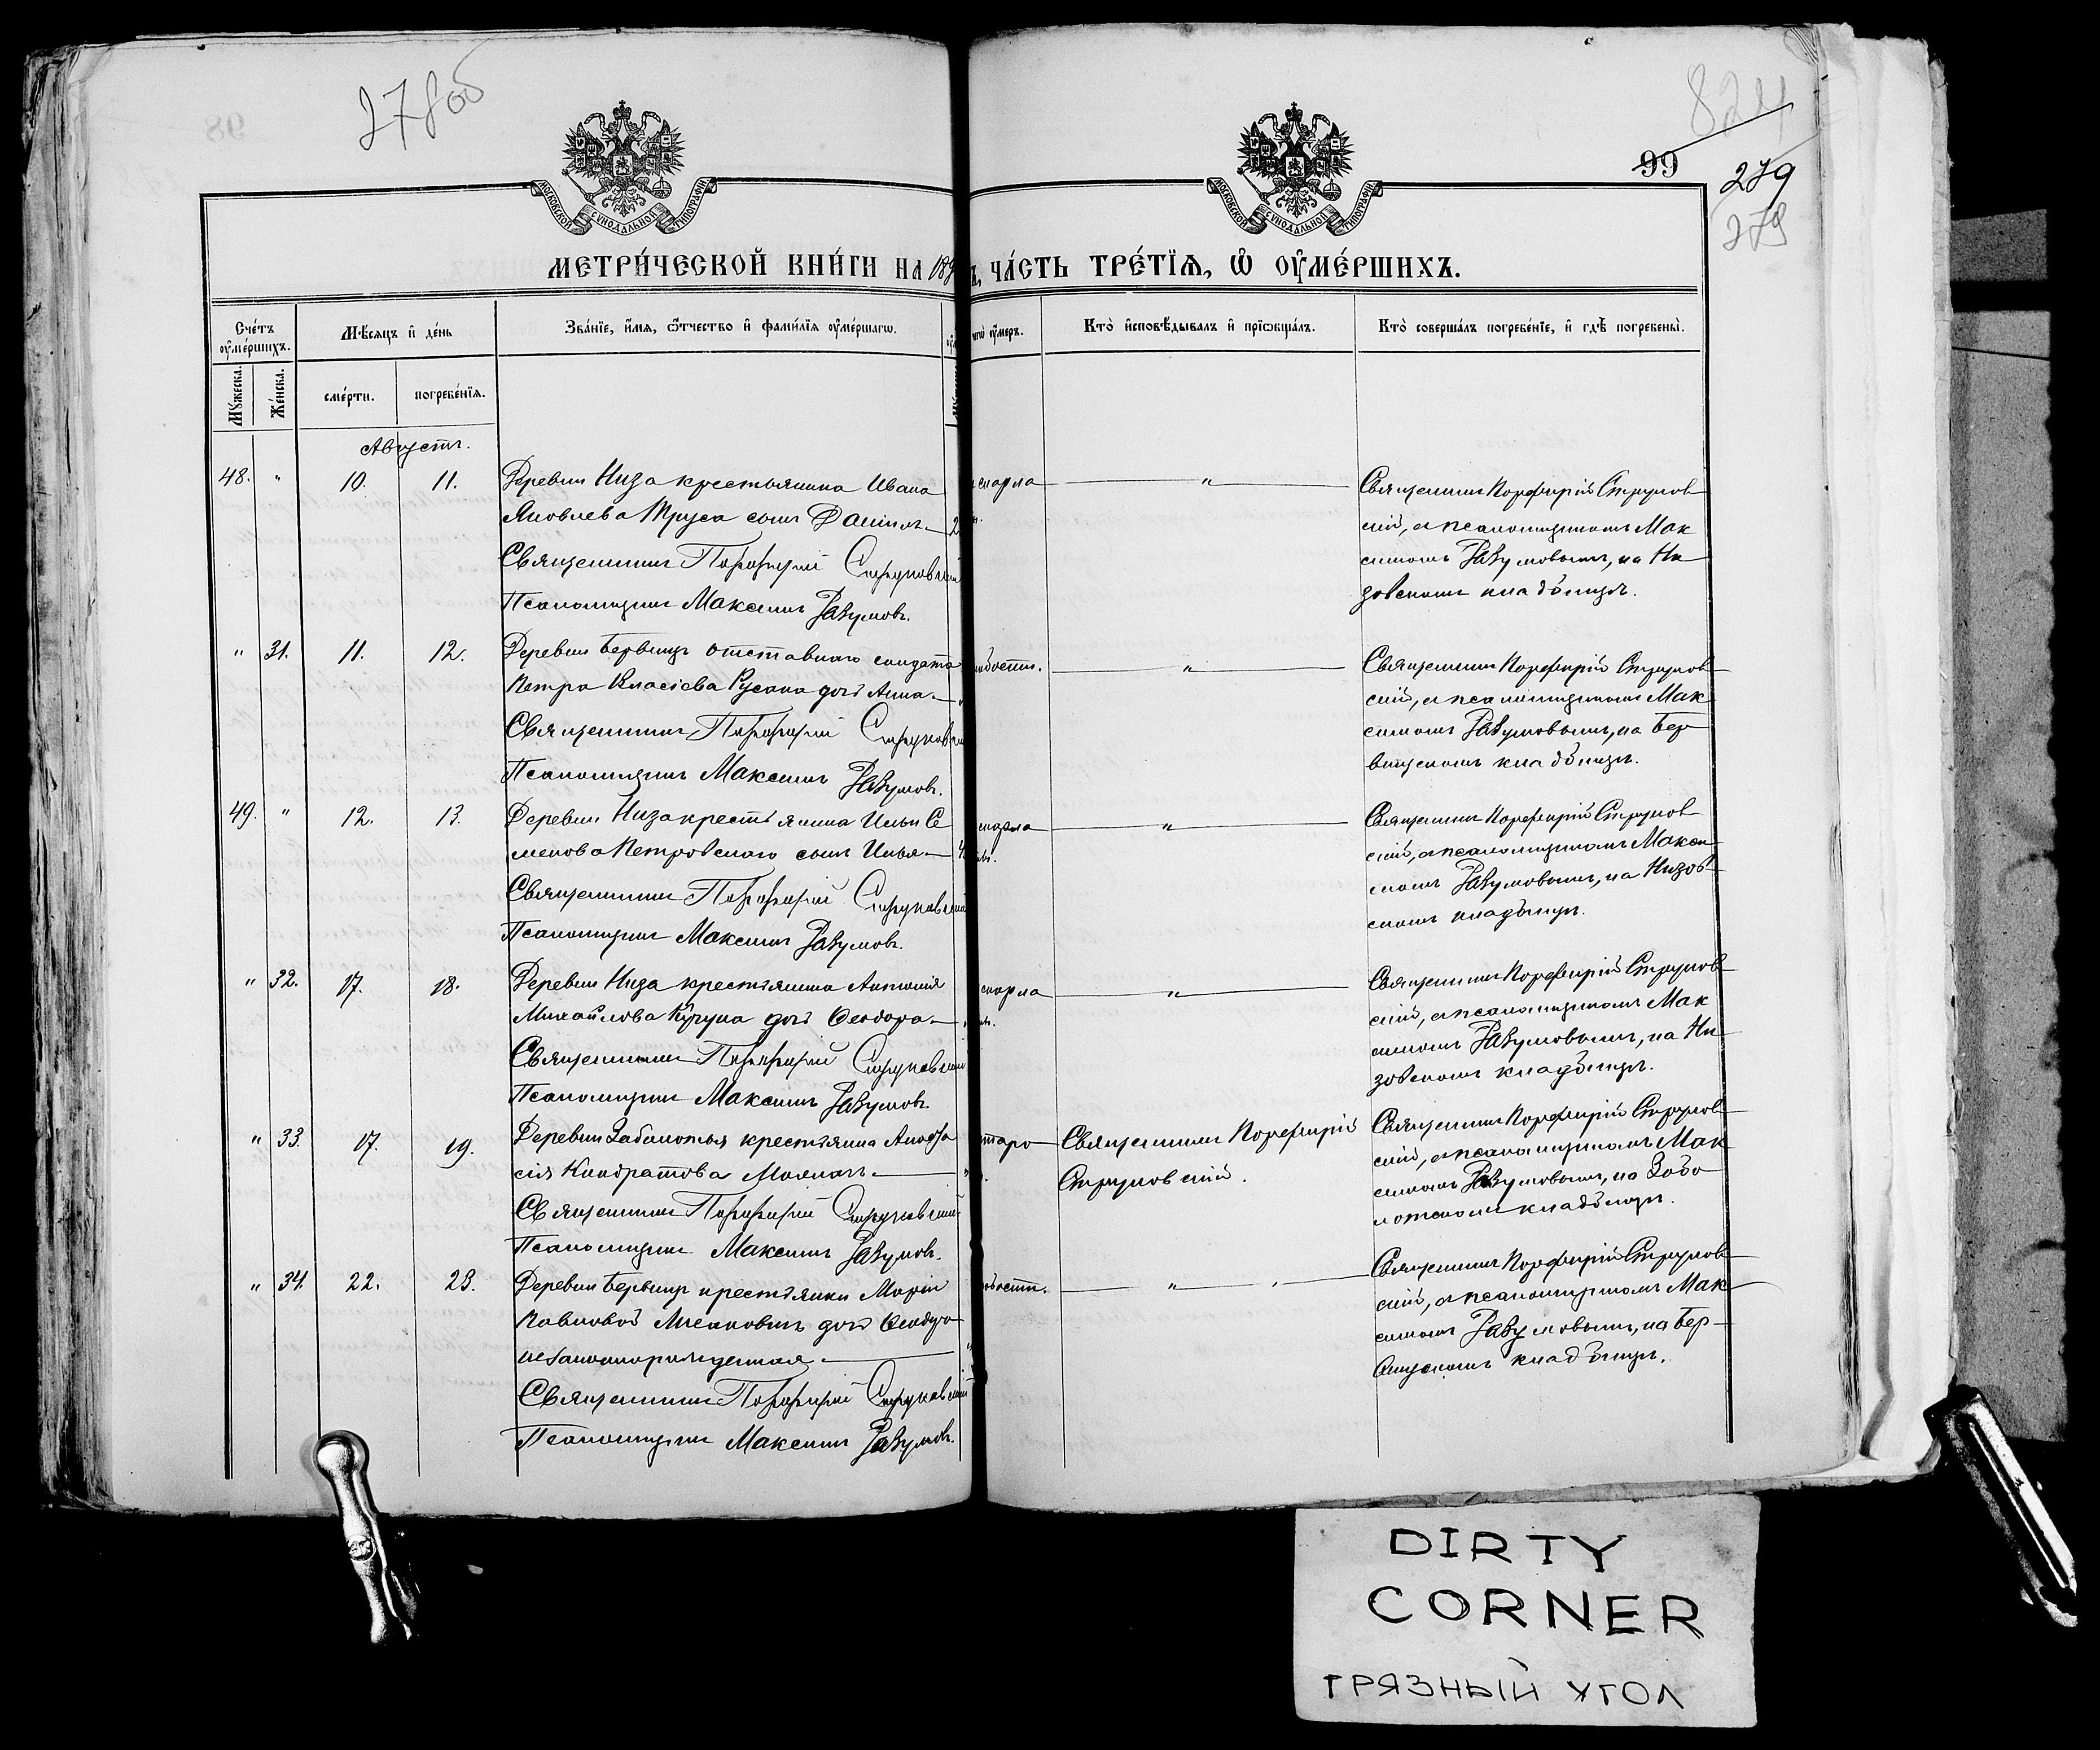 27805
824
99
279
279
МОСКОВСКОЙ СѴНОДАЛЬНОЙ ТИПОГРАФІИ
МОСКОВСКОЙ СѴНОДАЛЬНОЙ ТИПОГРАФІИ
МЕТРИ́ЧЕСКОЙ КНИ́ГИ НА 189
Ъ, ЧА́СТЬ ТРЕ́ТЇѦ, Ѽ ОУ҆МЕ́РШИХЪ.
Сче́тъ оу҆ме́ршихъ.
Мѣ́сяцъ и҆ де́нь
Зва́нїе, и҆́мя, ѻ҆́тчество и҆ фами́лїя оу҆ме́ршагѡ.
оу҆́меръ.
Кто̀ и҆сповѣ́дывалъ и҆ прїѡбща́лъ.
Кто̀ соверша́лъ погребе́нїе, и҆ гдѣ̀ погребены̀.
Мꙋ́жеска.
Же́нска.
сме́рти.
погребе́нїя.
Августъ.
48. " 10. 11.
Деревни Низа крестьянина Ивана
Яковлева Труса сынъ Даніилъ
Священникъ Порфирій Струковскій
Псаломщикъ Максимъ Разумовъ.
"
Священникъ Порфирій Струков
скій, съ псаломщикомъ Мак
симомъ Разумовымъ, на Ни
зовскомъ кладбищѣ.
" 31. 11. 12.
Деревни Бервищъ отставнаго солдата
Петра Власіева Русака дочь Анна
Священникъ Порфирій Струковскій
Псаломщикъ Максимъ Разумовъ.
"
Священникъ Порфирій Струков
скій, съ псаломщикомъ Мак
симомъ Разумовымъ, на Бер
вищскомъ кладбищѣ.
49. " 12. 13.
Деревни Низа крестьянина Ильи Се
менова Петровскаго сынъ Илья
Священникъ Порфирій Струковскій
Псаломщикъ Максимъ Разумовъ.
"
Священникъ Порфирій Струков
скій, съ псаломщикомъ Макси
момъ Разумовымъ, на Низов
скомъ кладбищѣ.
" 32. 17. 18.
Деревни Низа крестьянина Антонія
Михайлова дочь Ѳеодора
Священникъ Порфирій Струковскій
Псаломщикъ Максимъ Разумовъ.
"
Священникъ Порфирій Струков
скій, съ псаломщикомъ Мак
симомъ Разумовымъ, на Ни
зовскомъ кладбищѣ.
" 33. 17. 19.
Деревни Заболотья крестьянина
Кондратова
Священникъ Порфирій Струковскій
Псаломщикъ Максимъ Разумовъ.
Священникъ Порфирій
Струковскій.
Священникъ Порфирій Струков
скій, съ псаломщикомъ Мак
симомъ Разумовымъ, на Забо
лотскомъ кладбищѣ.
" 34 22. 23.
Деревни Бервищъ крестьянки Маріи
Павловой дочь Ѳеодора
незаконнорожденная
Священникъ Порфирій Струковскій
Псаломщикъ Максимъ Разумовъ.
"
Священникъ Порфирій Струков
скій, съ псаломщикомъ Мак
симомъ Разумовымъ, на Бер
вищскомъ кладбищѣ.
DIRTY
CORNER
ГРЯЗНЫЙ УГОЛ